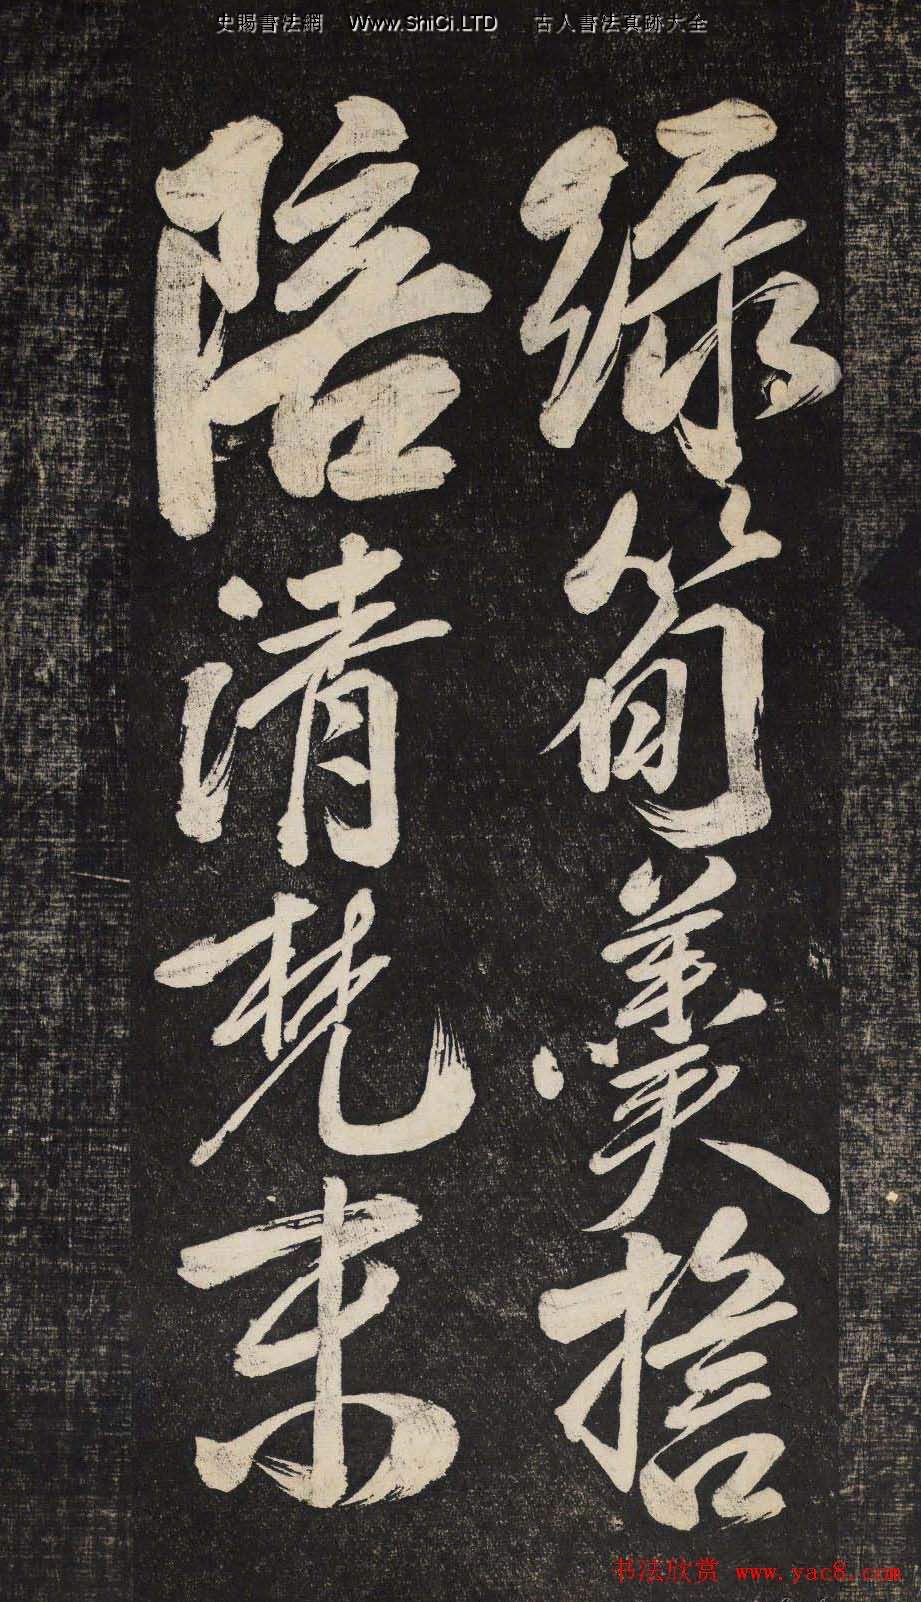 史賜書法網 Www.ShiCi.LTD 古人書法真跡大全
綠筍羹捨
陪清梵末
书法欣赏 www.yac8.com